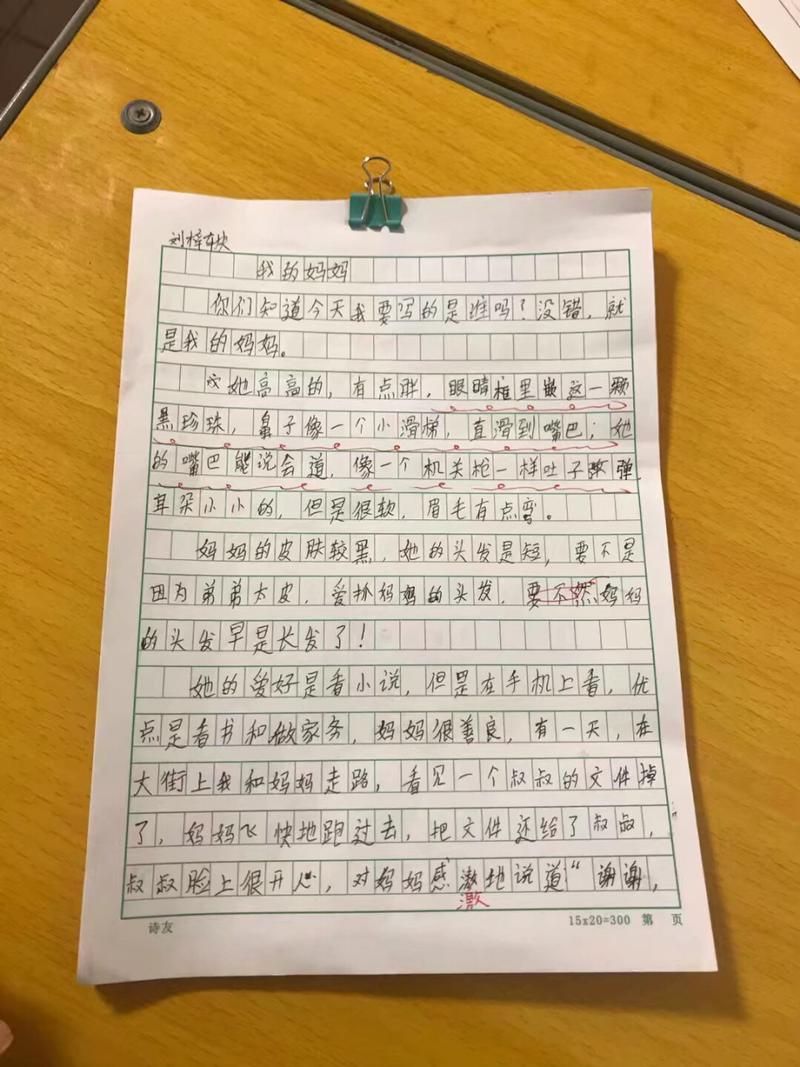 刘梓轶
我的妈妈
你们知道今天我要写的是谁吗？没错，就
是我的妈妈。
她高高的，有点胖，眼睛框里嵌这一颗
黑珍珠，鼻子像一个小滑梯，直滑到嘴巴；她
的嘴巴能说会道，像一个机关枪一样吐子弹，
耳朵小小的，但是很软，眉毛有点弯。
妈妈的皮肤较黑，她的头发是短，要不是
因为弟弟太皮，爱抓妈妈的头发，要不然妈妈
的头发早是长发了！
她的爱好是看小说，但是在手机上看，优
点是看书和做家务，妈妈很善良，有一天，在
大街上我和妈妈走路，看见一个叔叔的文件掉
了，妈妈飞快地跑过去，把文件还给了叔叔，
叔叔脸上很开心，对妈妈感激地说道“谢谢，
激
诗友 15x20=300 第 页